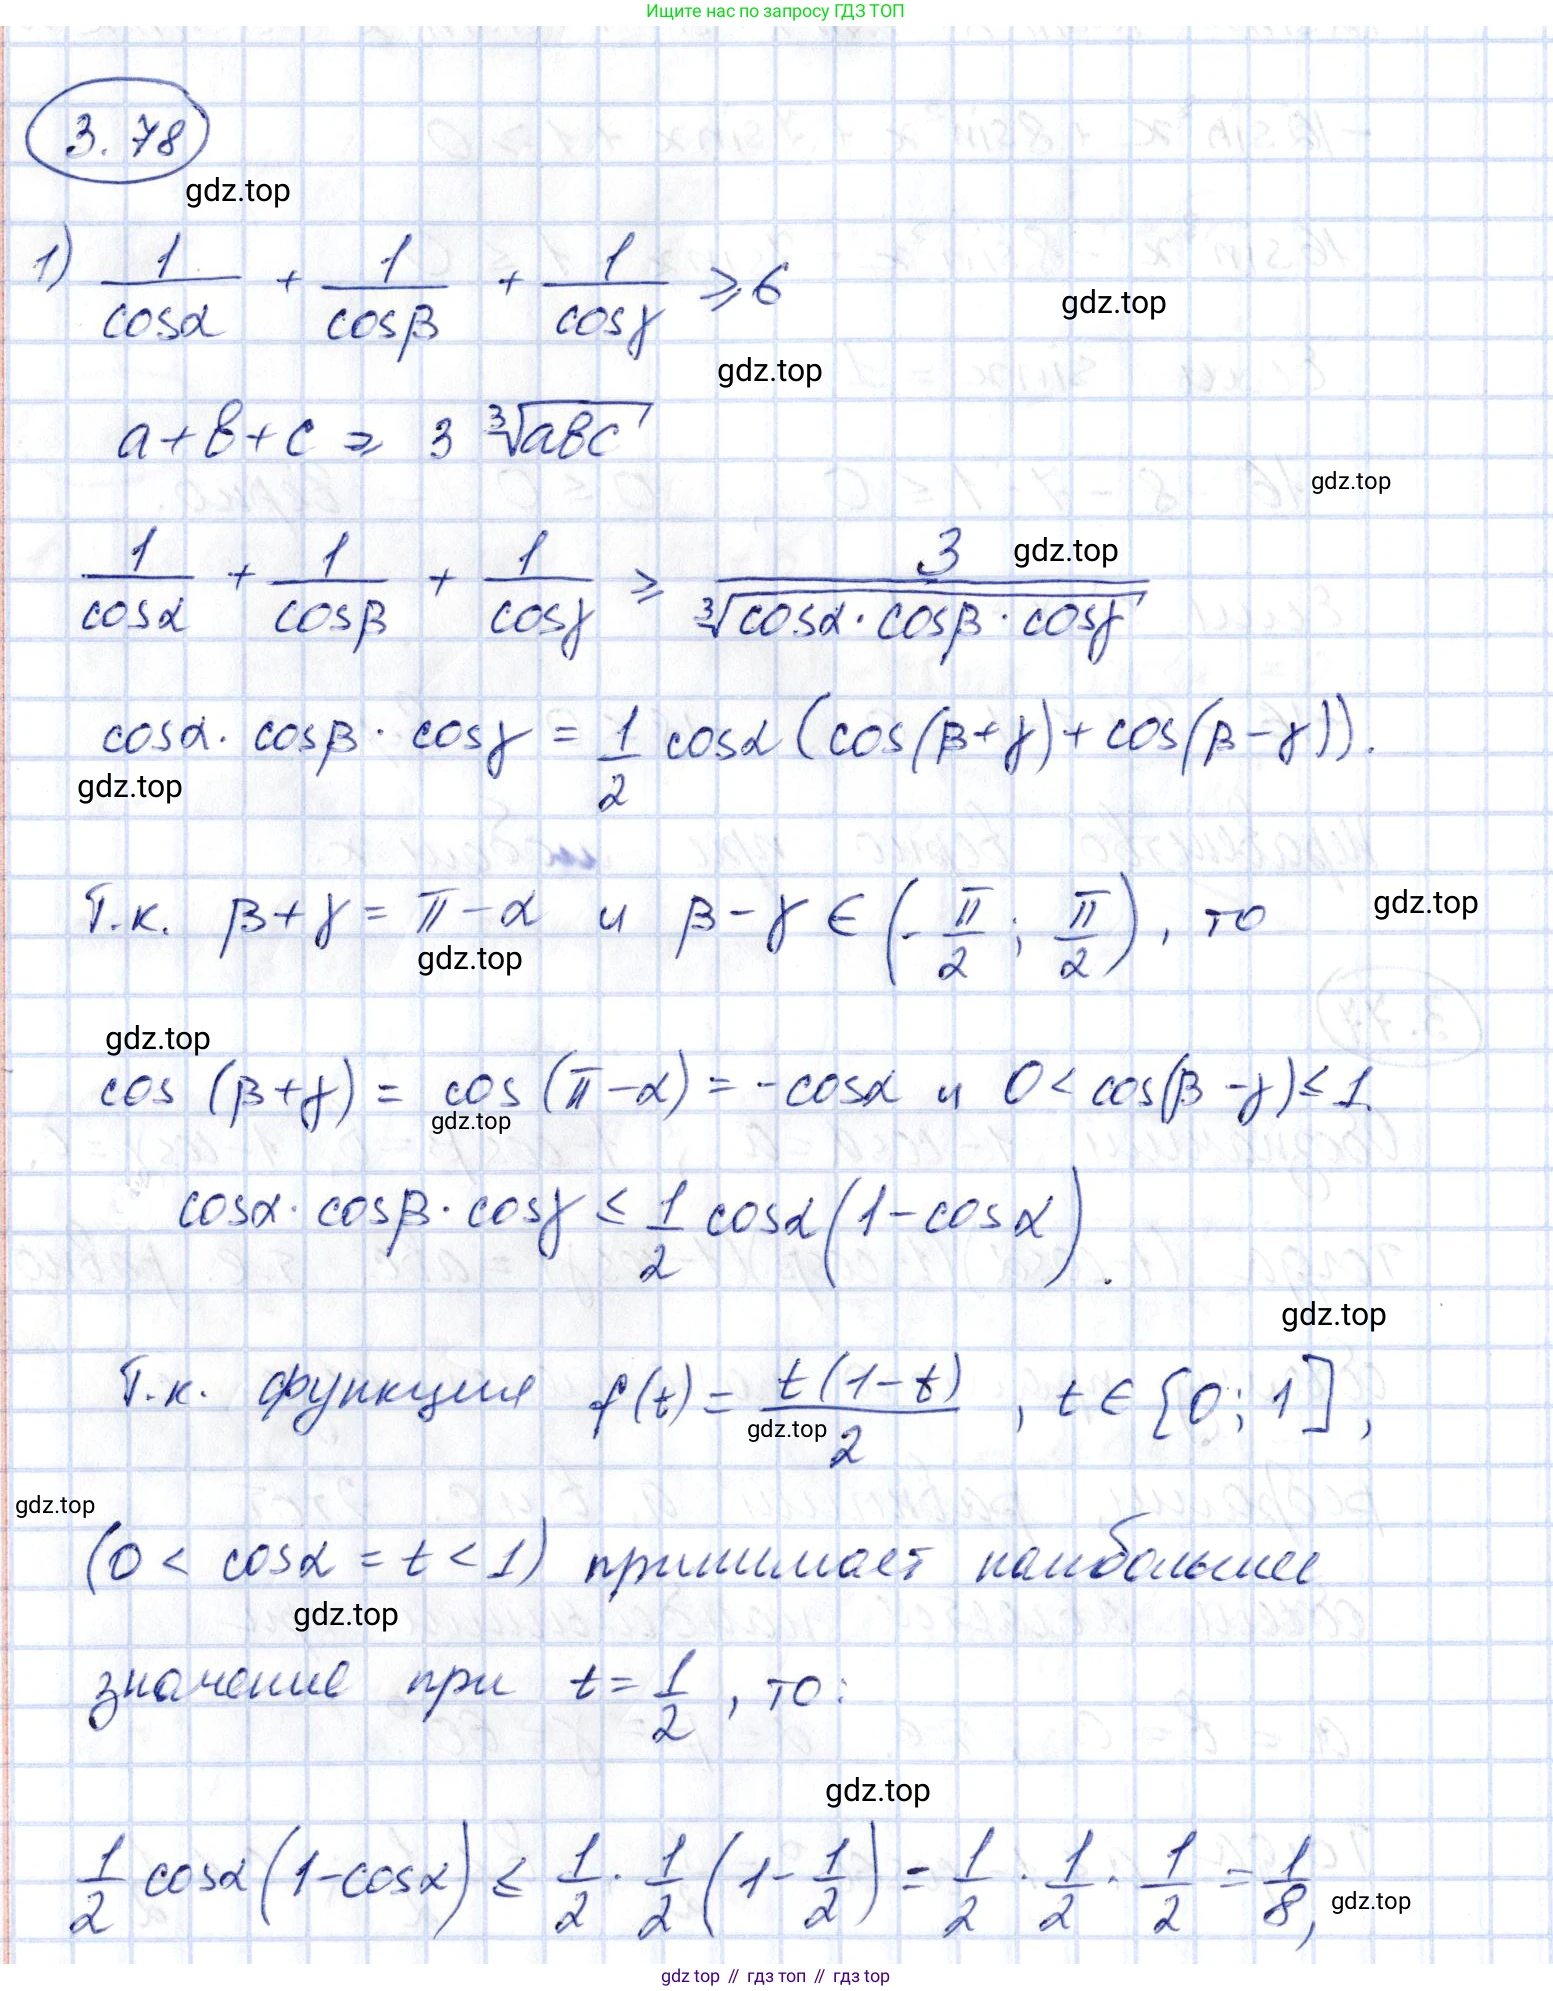 Ищите нас по запросу ГДЗ ТОП
3.78
gdz.top
1) 1/cosα + 1/cosβ + 1/cosγ ⩾ 6
gdz.top
gdz.top
a+b+c ⩾ 3 ∛abc
gdz.top
1/cosα + 1/cosβ + 1/cosγ ⩾ 3/∛(cosα·cosβ·cosγ)
gdz.top
cosα·cosβ·cosγ = 1/2 cosα(cos(β+γ)+cos(β−γ)).
gdz.top
Т.к. β+γ=π−α и β−γ∈(−π/2; π/2), то
gdz.top
gdz.top
gdz.top
cos(β+γ) = cos(π−α)=−cosα и 0<cos(β−γ)≤1.
gdz.top
cosα·cosβ·cosγ ≤ 1/2 cosα(1−cosα).
gdz.top
Т.к. функция f(t)= t(1−t)/2, t∈[0;1],
gdz.top
gdz.top
(0< cosα=t<1) принимает наибольшее
gdz.top
значение при t=1/2, то:
gdz.top
1/2 cosα(1−cosα) ≤ 1/2·1/2(1−1/2)=1/2·1/2·1/2=1/8,
gdz.top
gdz top // гдз топ // гдз top